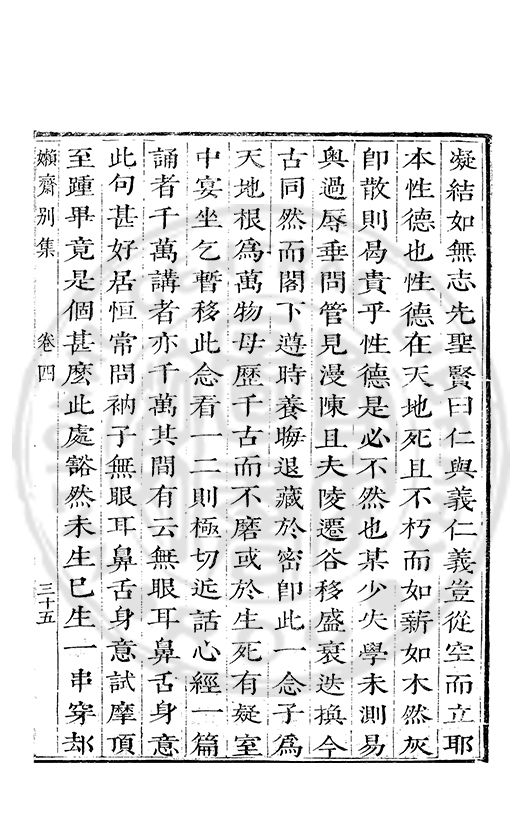 凝結如無志先聖賢曰仁與義仁義豈從空而立耶
本性德也性德在天地死且不朽而如薪如木然灰
卽散則曷貴乎性德是必不然也某少失學未測易
奧過辱垂問管見漫陳且夫陵遷谷移盛衰迭換今
古同然而閣下遵時養晦退藏於密卽此一念子爲
天地根爲萬物母歷千古而不磨或於生死有疑室
中宴坐乞暫移此念看一二則極切近話心經一篇
誦者千萬講者亦千萬其間有云無眼耳鼻舌身意
此句甚好居恒常問衲子無眼耳鼻舌身意試摩頂
至踵畢竟是個甚麽此處豁然未生已生一串穿却
嬾齋別集 卷四 三十五